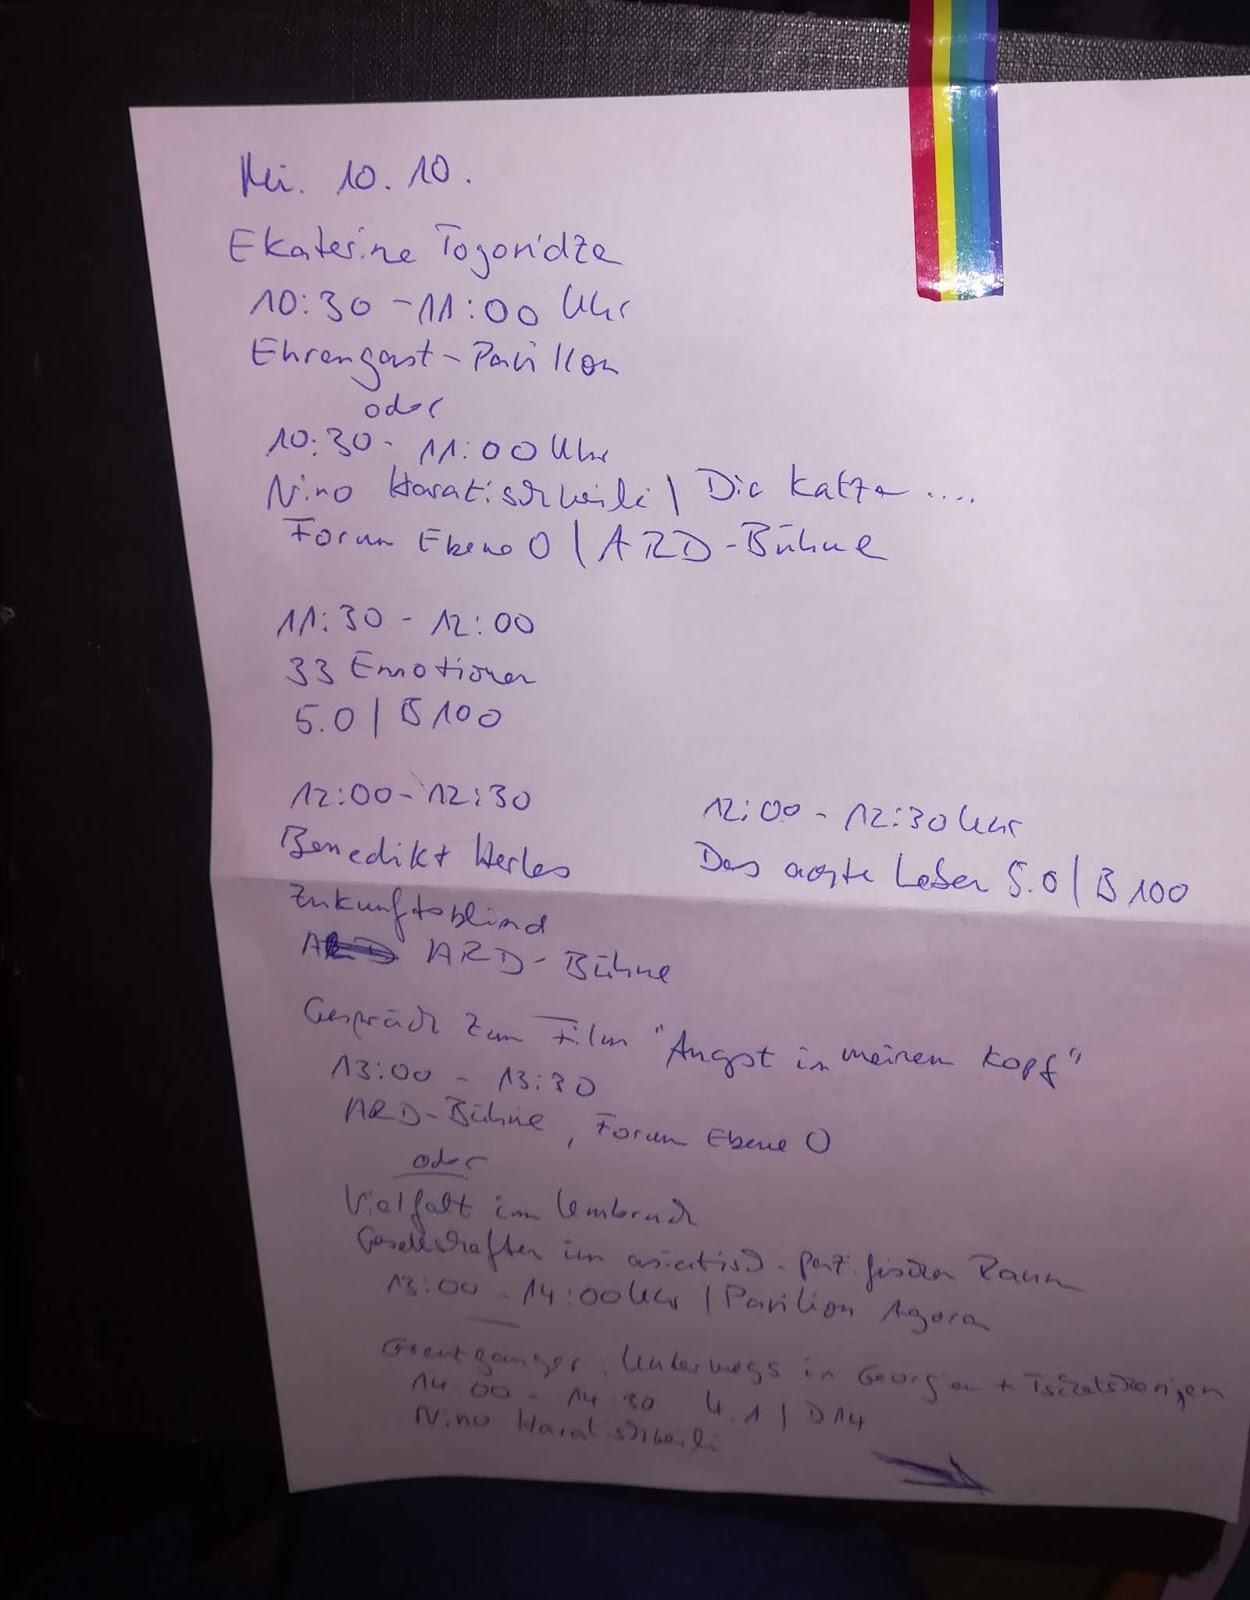 Mi. 10.10.
Ekaterine Togonidze
10:30 - 11:00 Uhr
Ehrengast-Pavillon
oder
10:30 - 11:00 Uhr
Nino Haratischwili | Die Katze ....
Forum Ebene 0 | ARD-Bühne
11:30 - 12:00
33 Emotionen
5.0 | B 100
12:00 - 12:30
Benedikt Herles
Zukunftsblind
ARD-Bühne
12:00 - 12:30 Uhr
Das achte Leben 5.0 | B 100
Gespräch zum Film "Angst in meinem Kopf"
13:00 - 13:30
ARD-Bühne, Forum Ebene 0
oder
Vielfalt im Umbruch
Gesellschaften im asiatisch-pazifischen Raum
13:00 - 14:00 Uhr | Pavilion Agora
Grenzgänger: Unterwegs in Georgien + Tschetschenien
14:00 - 14:30 4.1 | D14
Nino Haratischwili